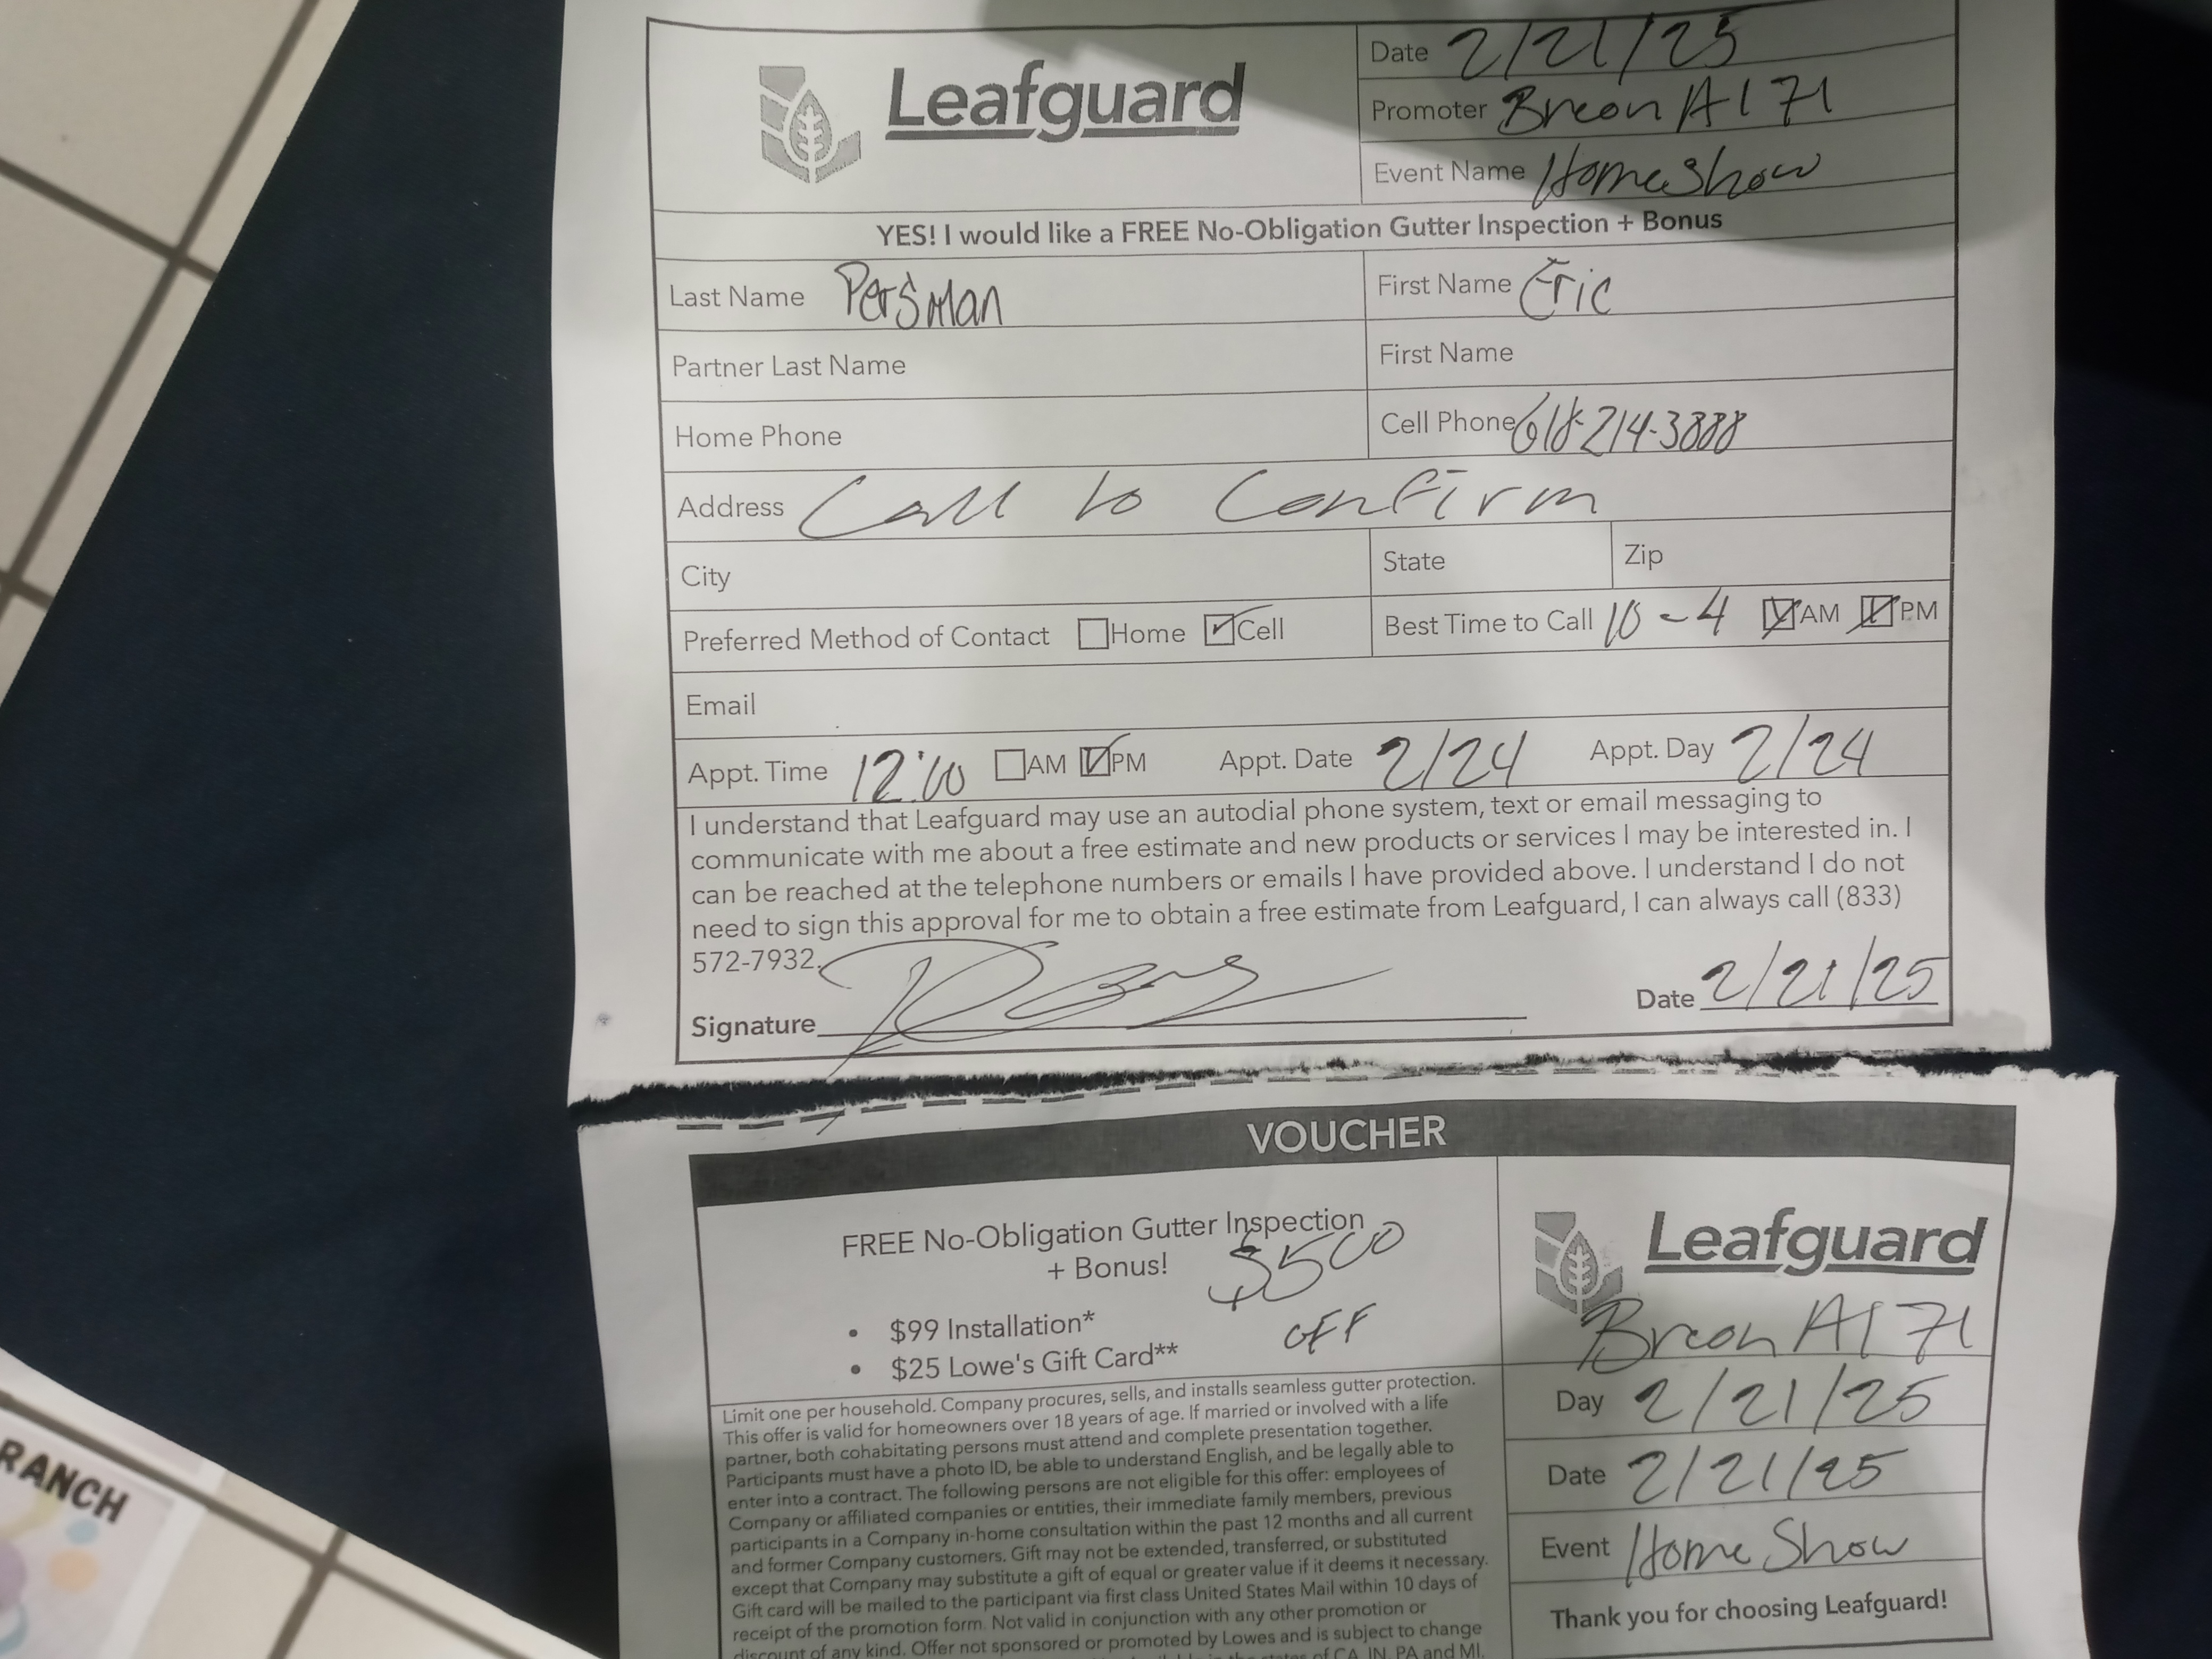 RANCH
Leafguard
Date 2/21/25
Promoter Breon A171
Event Name Home Show
YES! I would like a FREE No-Obligation Gutter Inspection + Bonus
Last Name First Name Eric
Partner Last Name First Name
Home Phone Cell Phone
Address Call to Confirm
City State Zip
Preferred Method of Contact Home Cell Best Time to Call 10-4 AM PM
Email
Appt. Time 12:00 AM PM Appt. Date 2/24 Appt. Day 2/24
I understand that Leafguard may use an autodial phone system, text or email messaging to
communicate with me about a free estimate and new products or services I may be interested in. I
can be reached at the telephone numbers or emails I have provided above. I understand I do not
need to sign this approval for me to obtain a free estimate from Leafguard, I can always call (833)
572-7932.
Signature Date 2/21/25
VOUCHER
FREE No-Obligation Gutter Inspection
+ Bonus!
• $99 Installation*
• $25 Lowe's Gift Card**
OFF
Limit one per household. Company procures, sells, and installs seamless gutter protection.
This offer is valid for homeowners over 18 years of age. If married or involved with a life
partner, both cohabitating persons must attend and complete presentation together.
Participants must have a photo ID, be able to understand English, and be legally able to
enter into a contract. The following persons are not eligible for this offer: employees of
Company or affiliated companies or entities, their immediate family members, previous
participants in a Company in-home consultation within the past 12 months and all current
and former Company customers. Gift may not be extended, transferred, or substituted
except that Company may substitute a gift of equal or greater value if it deems it necessary.
Gift card will be mailed to the participant via first class United States Mail within 10 days of
receipt of the promotion form. Not valid in conjunction with any other promotion or
discount of any kind. Offer not sponsored or promoted by Lowes and is subject to change
Leafguard
Breon A171
Day 2/21/25
Date 2/21/25
Event Home Show
Thank you for choosing Leafguard!